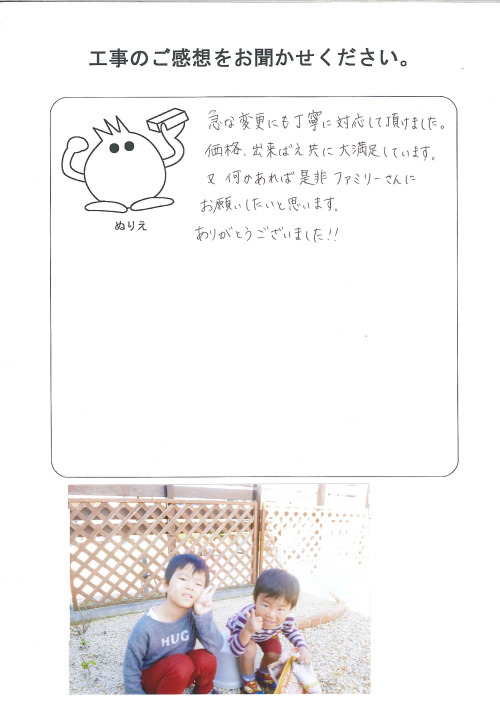 工事のご感想をお聞かせください。
急な変更にも丁寧に対応して頂けました。
価格、出来ばえ共に大満足しています。
又何かあれば是非ファミリーさんに
お願いしたいと思います。
ありがとうございました!!
ぬりえ
HUG